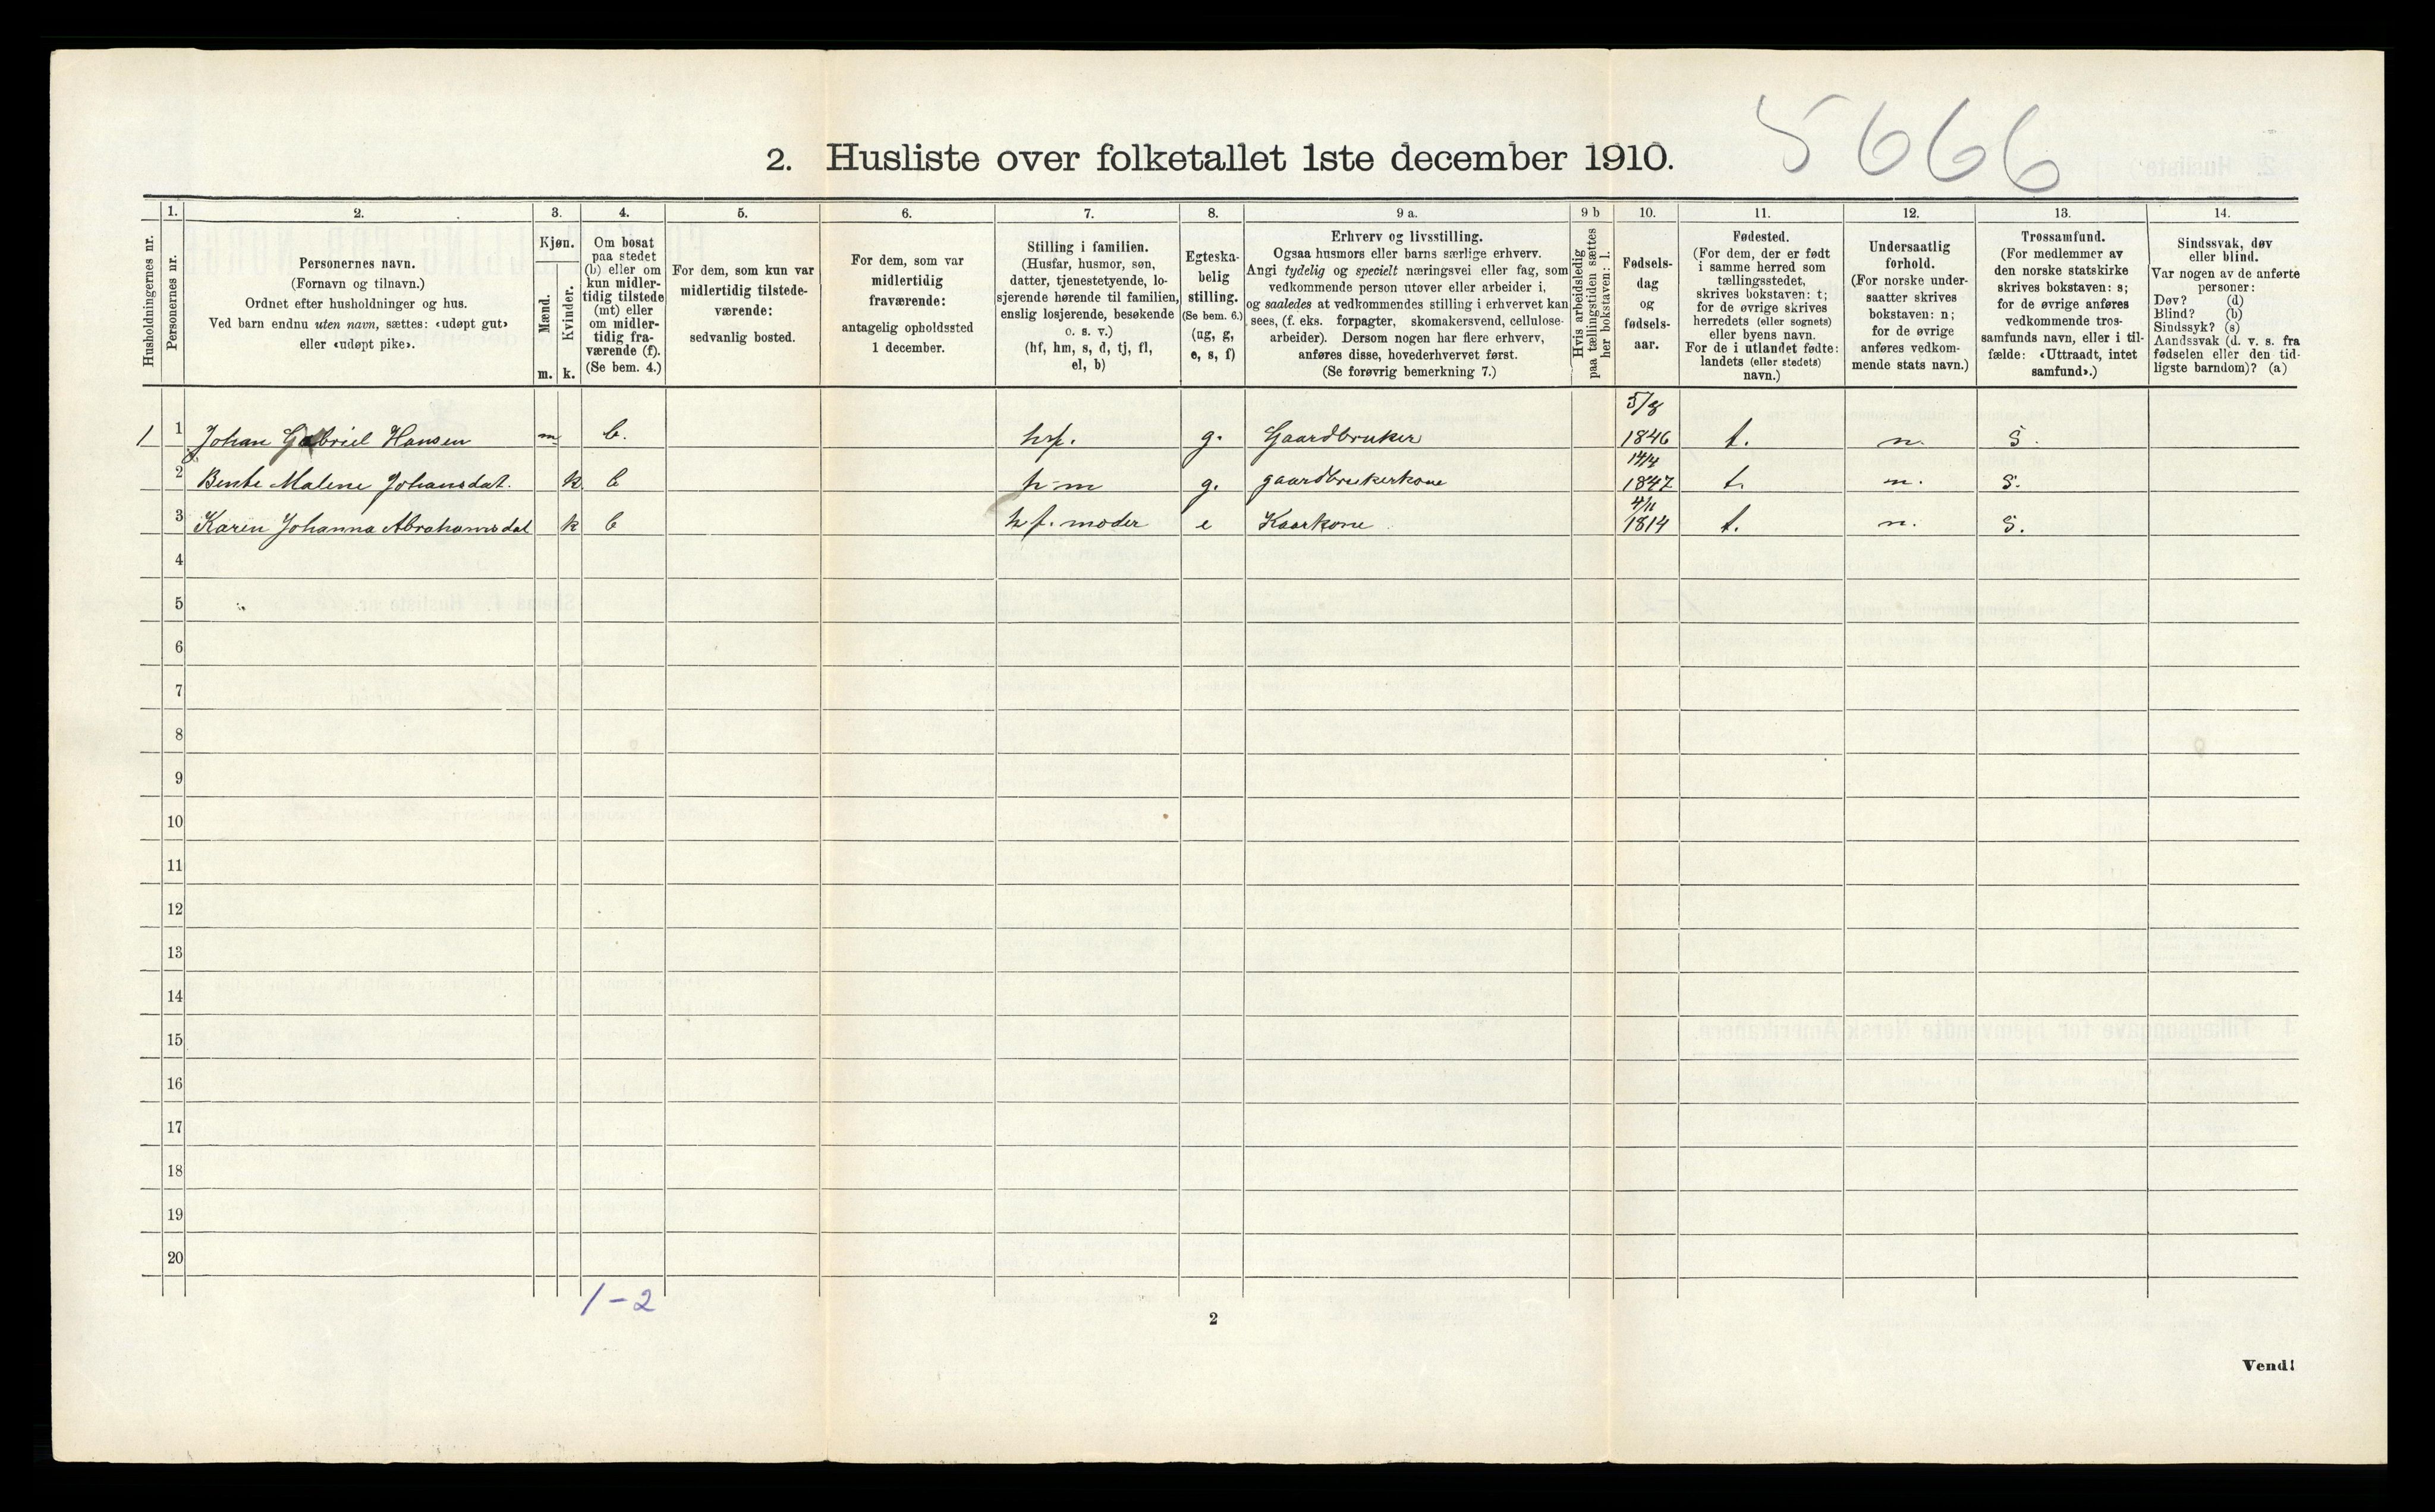 5666
2. Husliste over folketallet 1ste december 1910.
Husholdningernes nr.
1.
Personernes nr.
2.
Personernes navn.
(Fornavn og tilnavn.)
Ordnet efter husholdninger og hus.
Ved barn endnu uten navn, sættes: «udøpt gut»
eller «udøpt pike».
3.
Kjøn.
Mænd.
Kvinder.
m. k.
4.
Om bosat
paa stedet
(b) eller om
kun midler-
tidig tilstede
(mt) eller
om midler-
tidig fra-
værende (f).
(Se bem. 4.)
5.
For dem, som kun var
midlertidig tilstede-
værende:
sedvanlig bosted.
6.
For dem, som var
midlertidig
fraværende:
antagelig opholdssted
1 december.
7.
Stilling i familien.
(Husfar, husmor, søn,
datter, tjenestetyende, lo-
sjerende hørende til familien,
enslig losjerende, besøkende
o. s. v.)
(hf, hm, s, d, tj, fl,
el, b)
8.
Egteska-
belig
stilling.
(Se bem. 6.)
(ug, g,
e, s, f)
9 a.
Erhverv og livsstilling.
Ogsaa husmors eller barns særlige erhverv.
Angi tydelig og specielt næringsvei eller fag, som
vedkommende person utøver eller arbeider i,
og saaledes at vedkommendes stilling i erhvervet kan
sees, (f. eks. forpagter, skomakersvend, cellulose-
arbeider). Dersom nogen har flere erhverv,
anføres disse, hovederhvervet først.
(Se forøvrig bemerkning 7.)
9 b
Hvis arbeidsledig
paa tællingstiden sættes
her bokstaven: l.
10.
Fødsels-
dag
og
fødsels-
aar.
11.
Fødested.
(For dem, der er født
i samme herred som
tællingsstedet,
skrives bokstaven: t;
for de øvrige skrives
herredets (eller sognets)
eller byens navn.
For de i utlandet fødte:
landets (eller stedets)
navn.)
12.
Undersaatlig
forhold.
(For norske under-
saatter skrives
bokstaven: n;
for de øvrige
anføres vedkom-
mende stats navn.)
13.
Trossamfund.
(For medlemmer av
den norske statskirke
skrives bokstaven: s;
for de øvrige anføres
vedkommende tros-
samfunds navn, eller i til-
fælde: «Uttraadt, intet
samfund».)
14.
Sindssvak, døv
eller blind.
Var nogen av de anførte
personer:
Døv? (d)
Blind? (b)
Sindssyk? (s)
Aandssvak (d. v. s. fra
fødselen eller den tid-
ligste barndom)? (a)
1 1 Johan Gabriel Hansen m b. hf. g. Gaardbruker 5/8 1846 t. n. s.
2 Bente Malene Johansdat. k b h-m g. gaardbrukerkone 14/4 1847 t. n. s.
3 Karen Johanna Abrahamsdat k b hf. moder e Kaarkone 4/11 1814 t. n. s.
4
5
6
7
8
9
10
11
12
13
14
15
16
17
18
19
20
1-2
2
Vend!